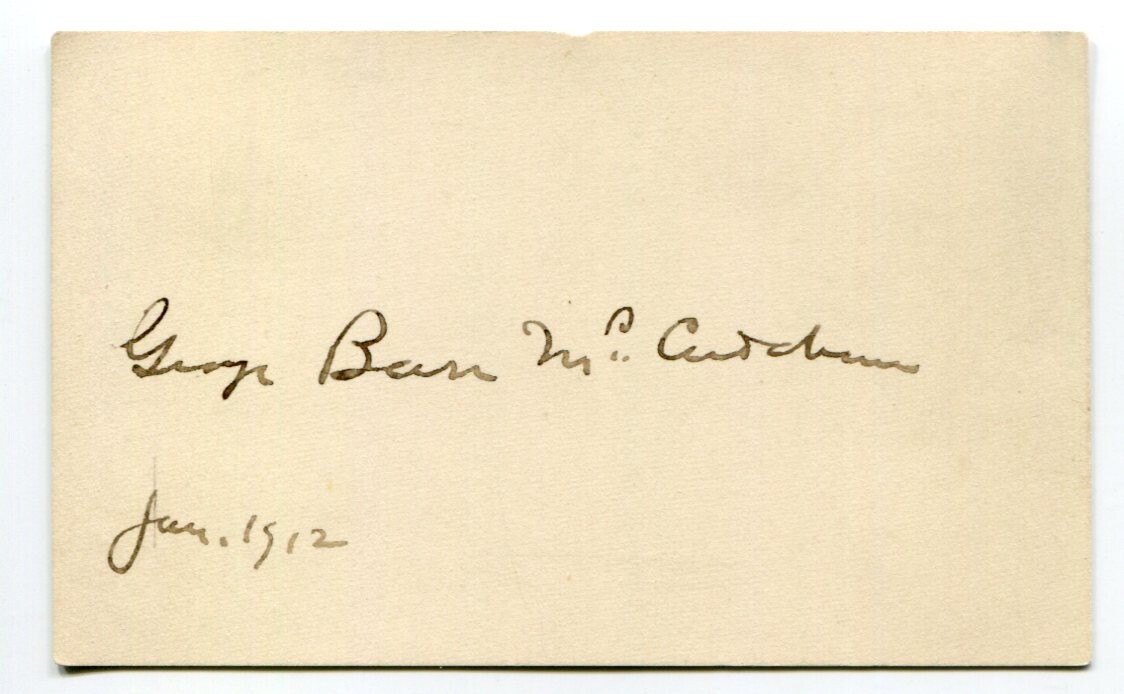 George Barr McCutcheon
Jan. 1912